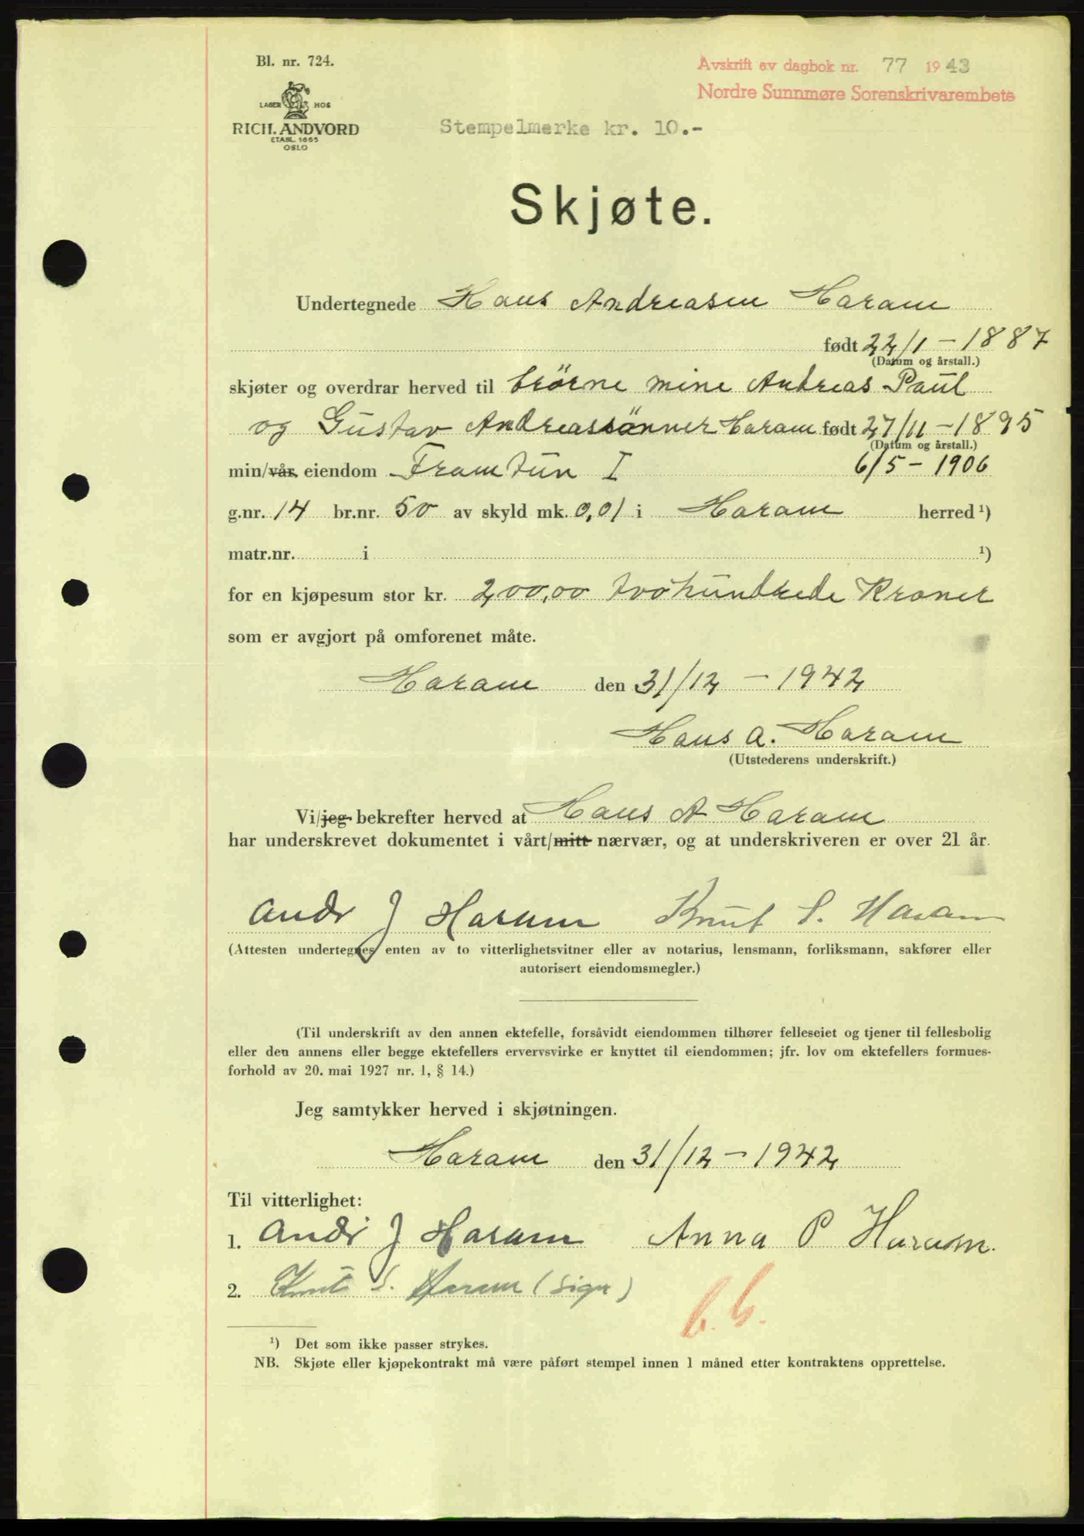 Bl. nr. 724.
LAGER HOS
RICH. ANDVORD
ETABL. 1865
OSLO
Avskrift av dagbok nr. 77 1943
Nordre Sunnmøre Sorenskrivarembete
Stempelmerke kr. 10.-
Skjøte.
Undertegnede Hans Andreasen Haram
født 22/1 - 1887
(Datum og årstall.)
skjøter og overdrar herved til brörne mine Andreas Paul
og Gustav Andreassönner Haram født 27/11 - 1895
(Datum og årstall.)
min/vår eiendom Framtun I 6/5 - 1906
g.nr. 14 br.nr. 50 av skyld mk. 0,01 i Haram herred ¹)
matr.nr. i ¹)
for en kjøpesum stor kr. 200,00 tvohundrede Kroner
som er avgjort på omforenet måte.
Haram den 31/12 - 1942
Hans A. Haram
(Utstederens underskrift.)
Vi/jeg bekrefter herved at Hans A Haram
har underskrevet dokumentet i vårt/mitt nærvær, og at underskriveren er over 21 år.
Andr J Haram Knut S. Haram
(Attesten undertegnes enten av to vitterlighetsvitner eller av notarius, lensmann, forliksmann, sakfører eller
autorisert eiendomsmegler.)
(Til underskrift av den annen ektefelle, forsåvidt eiendommen tilhører felleseiet og tjener til fellesbolig
eller den annens eller begge ektefellers ervervsvirke er knyttet til eiendommen; jfr. lov om ektefellers formues-
forhold av 20. mai 1927 nr. 1, § 14.)
Jeg samtykker herved i skjøtningen.
Haram den 31/12 - 1942
Til vitterlighet:
1. Andr J Haram Anna P Haram.
2. Knut S. Haram (sign)
¹) Det som ikke passer strykes.
NB. Skjøte eller kjøpekontrakt må være påført stempel innen 1 måned etter kontraktens opprettelse.